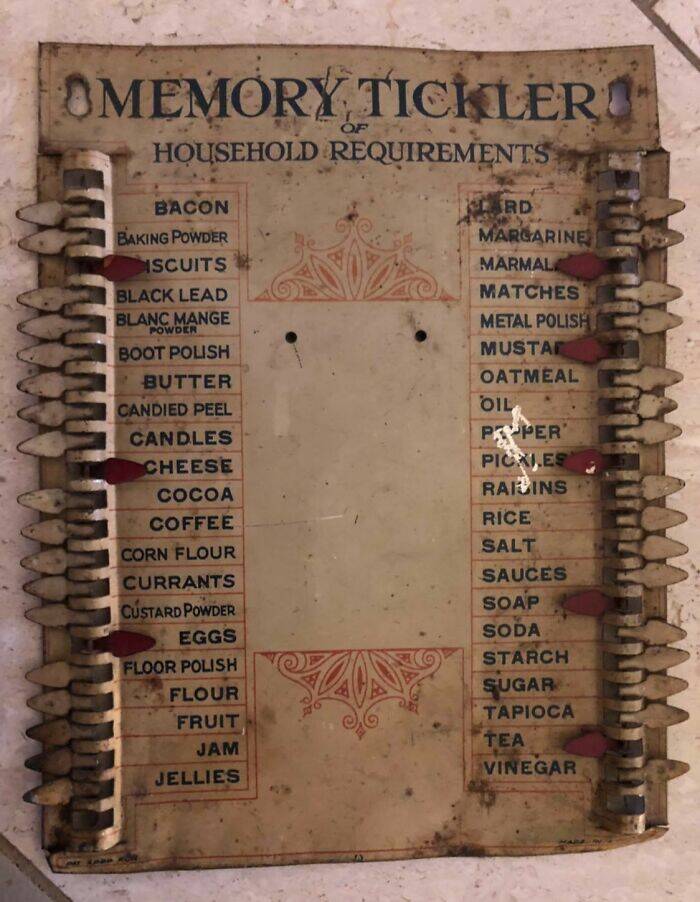 MEMORY TICKLER
OF
HOUSEHOLD REQUIREMENTS
BACON
BAKING POWDER
ISCUITS
BLACK LEAD
BLANC MANGE
POWDER
BOOT POLISH
BUTTER
CANDIED PEEL
CANDLES
CHEESE
COCOA
COFFEE
CORN FLOUR
CURRANTS
CUSTARD POWDER
EGGS
FLOOR POLISH
FLOUR
FRUIT
JAM
JELLIES
LARD
MARGARINE
MARMAL
MATCHES
METAL POLISH
MUSTA
OATMEAL
OIL
PEPPER
PICKLES
RAISINS
RICE
SALT
SAUCES
SOAP
SODA
STARCH
SUGAR
TAPIOCA
TEA
VINEGAR